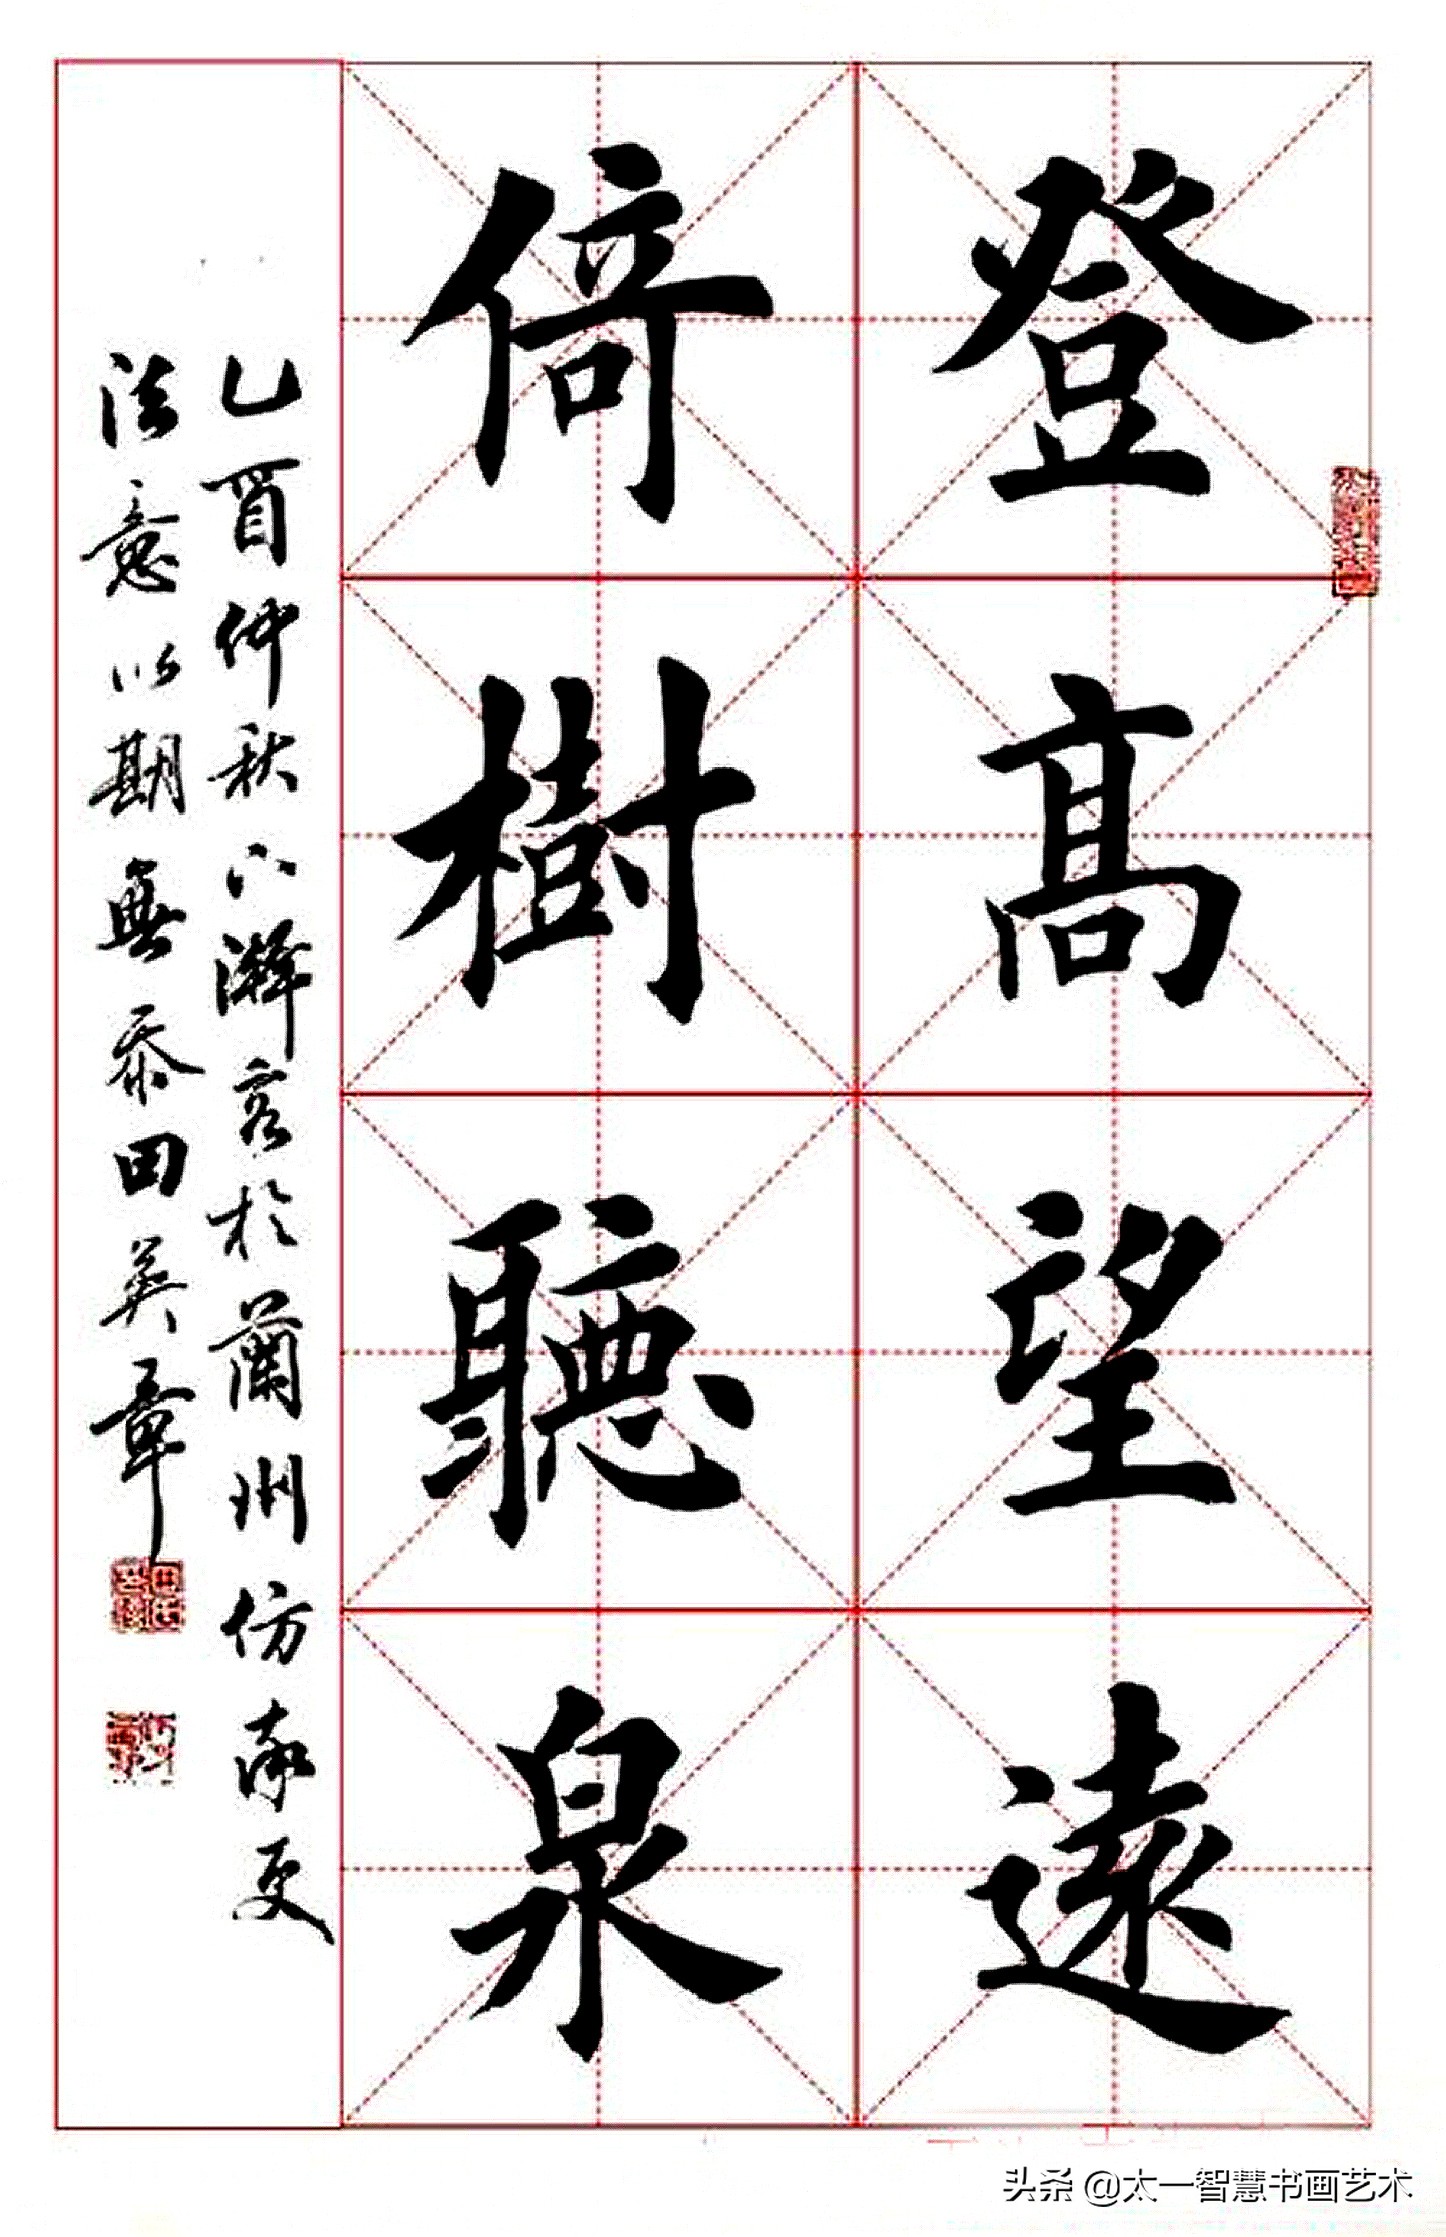 登高望遠
倚樹聽泉
乙酉仲秋下澣客於蘭州仿率更
法意以期無忝田英章
头条 @太一智慧书画艺术